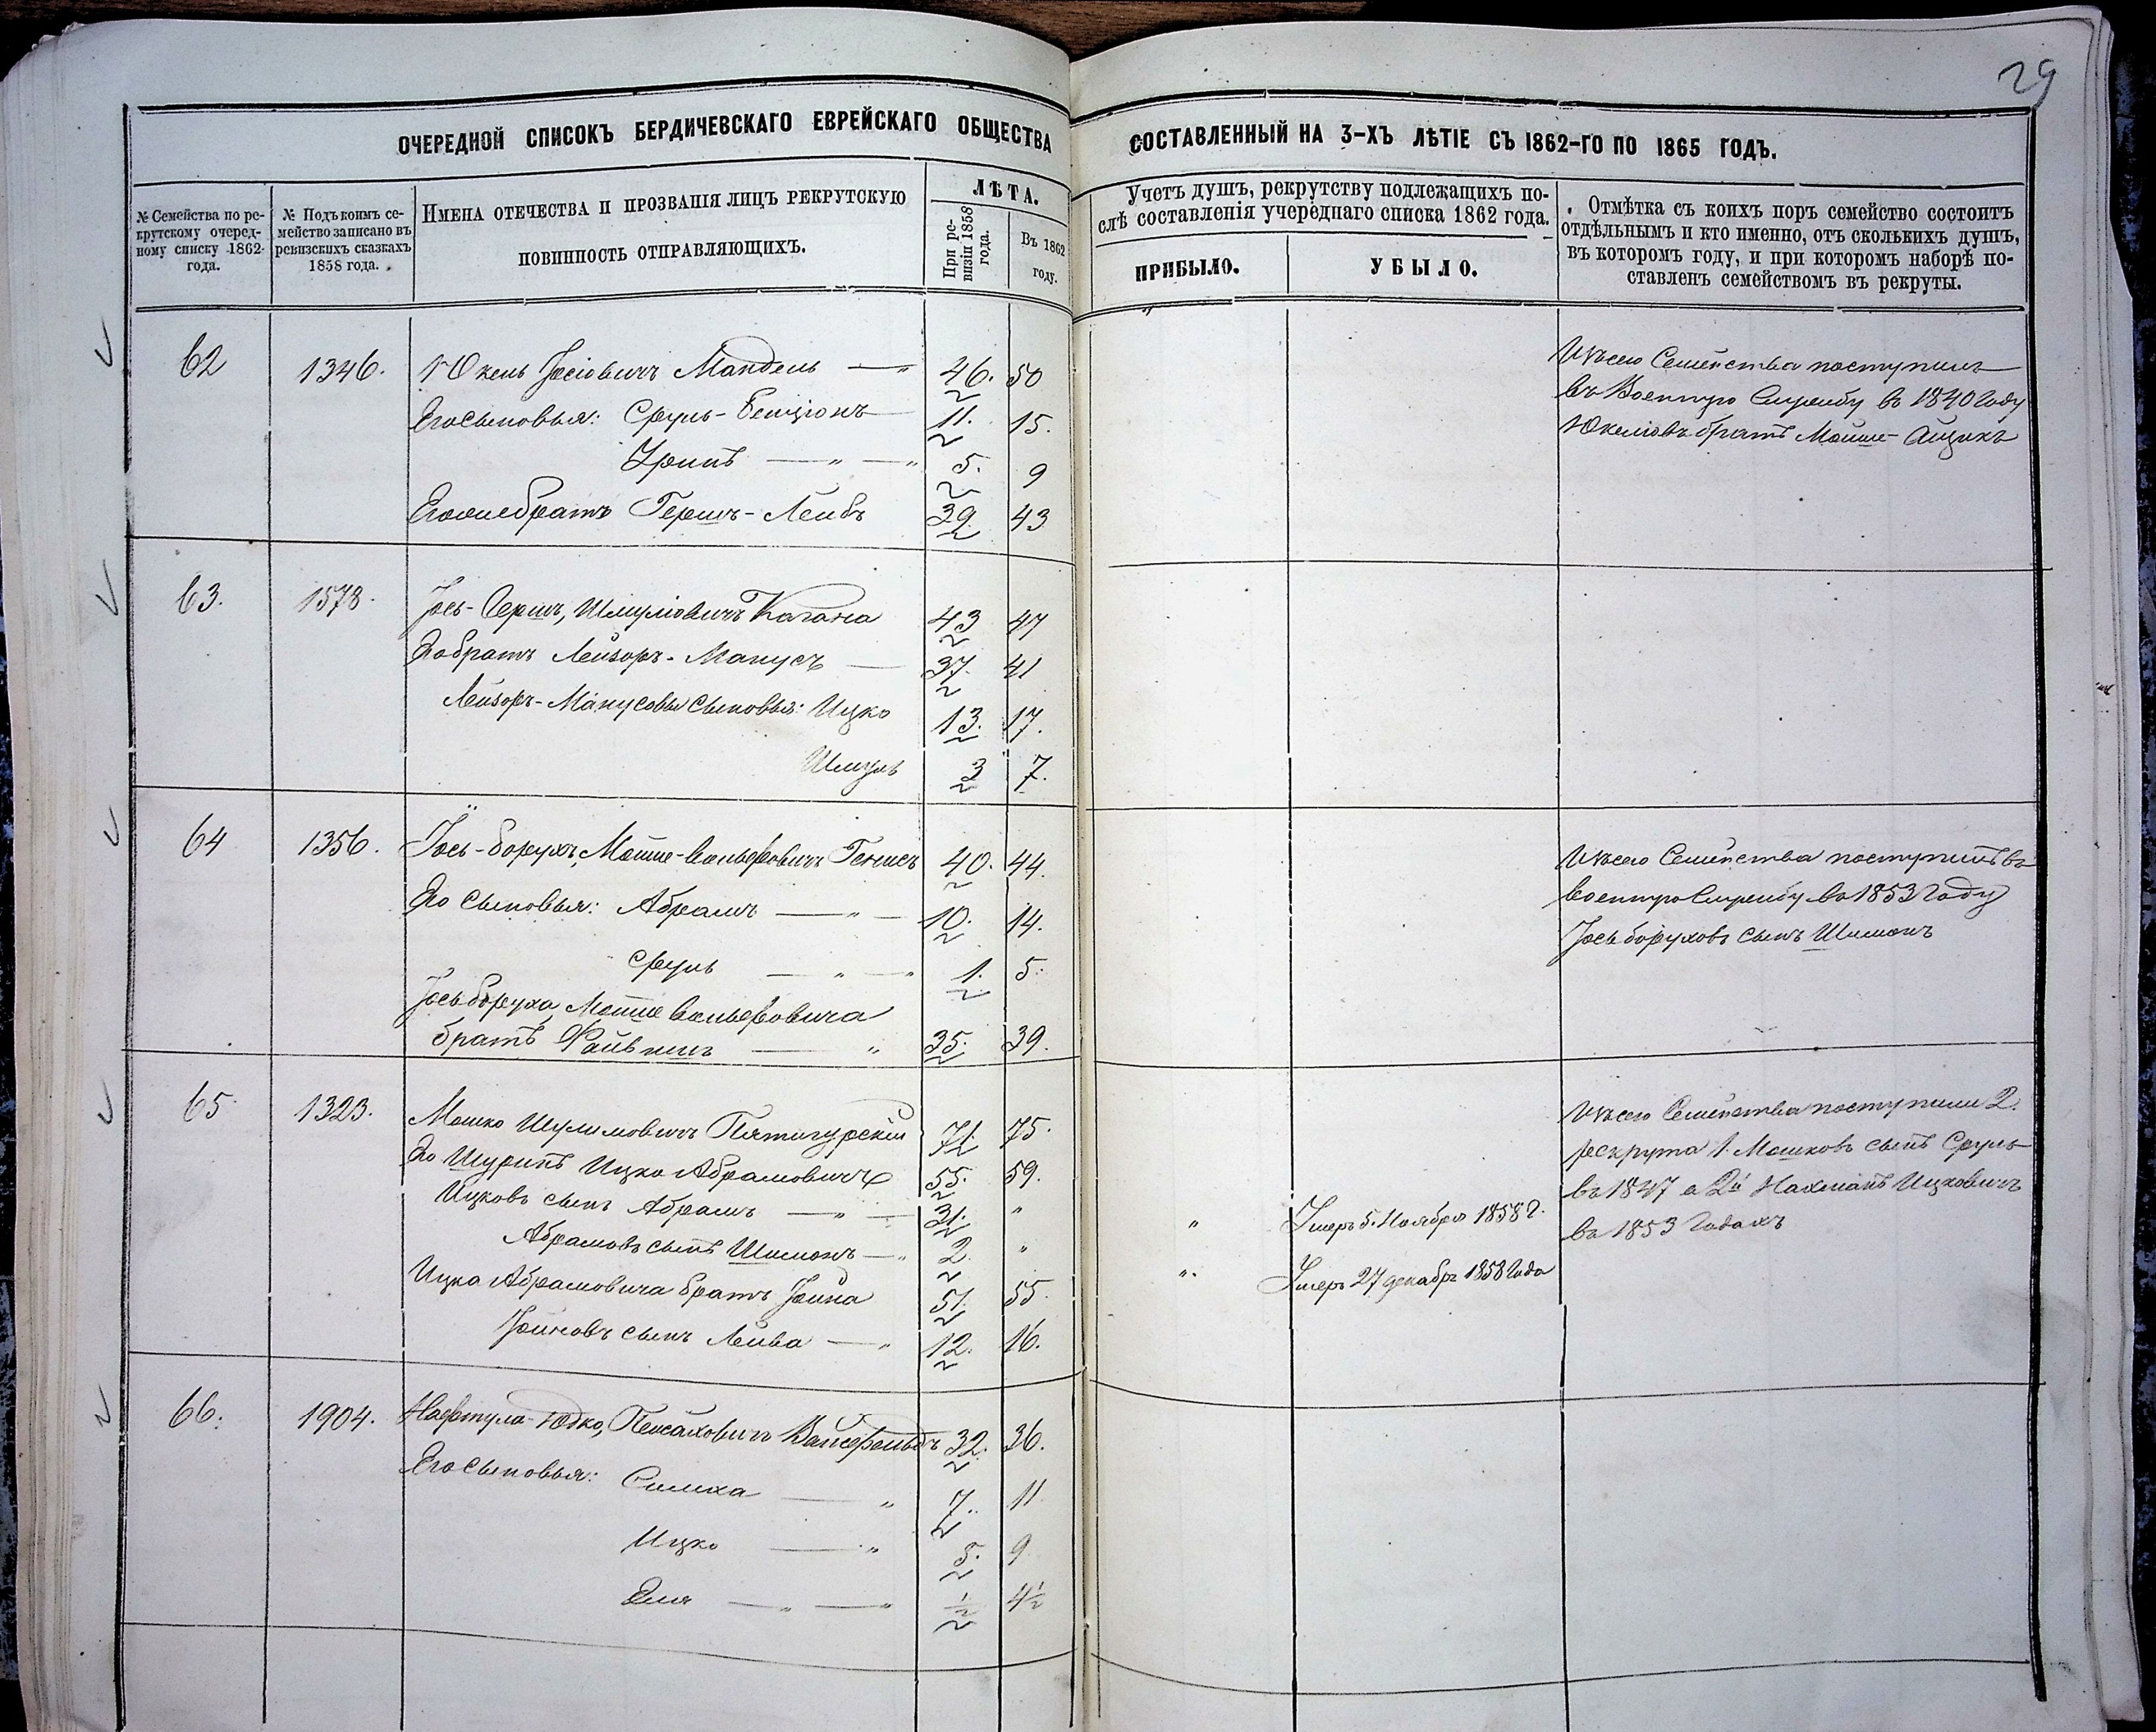 29
ОЧЕРЕДНОЙ СПИСОКЪ БЕРДИЧЕВСКАГО ЕВРЕЙСКАГО ОБЩЕСТВА СОСТАВЛЕННЫЙ НА 3-ХЪ ЛѢТІЕ СЪ 1862-ГО ПО 1865 ГОДЪ.
№ Семейства по ре-
крутскому очеред-
ному списку 1862
года.
№ Подъ коимъ се-
мейство записано въ
ревизскихъ сказкахъ
1858 года.
Имена отечества и прозванія лицъ рекрутскую
повинность отправляющихъ.
ЛѢТА.
При ре-
визіи 1858
года.
Въ 1862
году.
Учетъ душъ, рекрутству подлежащихъ по-
слѣ составленія учереднаго списка 1862 года.
ПРИБЫЛО.
УБЫЛО.
Отмѣтка съ коихъ поръ семейство состоитъ
отдѣльнымъ и кто именно, отъ сколькихъ душъ,
въ котором году, и при котором наборѣ по-
ставленъ семействомъ въ рекруты.
62 1346. Юкель Іосіовичъ Мандель — 46. 50
Его сыновья: Сруль-Бенціонъ 11. 15.
5. 9
Его же братъ Гершъ-Лейбъ 39. 43
Изъ сего Семейства поступилъ
въ Военную Службу въ 1840 Году
Юкеліовъ братъ Мойше-Айзикъ
63. 1578. Іось-Гершъ, Шмуліовичъ Кагана 43 47
Его братъ Лейзоръ-Манусъ — 37. 41
Лейзоръ-Манусовы сыновья: Ицко 13. 17.
Шмуль 3 7.
64 1356. Іось-Борухъ, Мотше-Вольфовичъ 40. 44.
Его сыновья: Абрамъ — " — 10. 14.
Сруль — " — " 1. 5.
Іось Боруха Мотше Вольфовича
братъ Файвишъ — " 35. 39.
Изъ сего Семейства поступилъ въ
военную Службу въ 1853 Году
Іось Боруховъ сынъ Шимонъ
65 1323. Мошко Шулимовичъ Пятигурскій 71. 75.
Его Шуринъ Ицко Абрамовичъ 55. 59.
Ицковъ сынъ Абрамъ — " — 31. "
Абрамовъ сынъ Шимонъ — " 2. "
Ицка Абрамовича братъ Іойна 51. 55.
Іойновъ сынъ Лейба — " 12. 16.
" Умеръ 5. Ноября 1858 г.
" Умеръ 27 декабр 1858 Года
Изъ сего Семейства поступили 2.
рекрута 1. Мошковъ сынъ Сруль
въ 1847 а 2й Нахманъ Ицковичъ
въ 1853 Годахъ
66. 1904. Нафтула-Юдко, Пейсаховичъ Вайсфельдъ 32. 36.
Его сыновья: Симха — " 7. 11
Ицко — " 5. 9
Эля — " — " 1/2 4 1/2